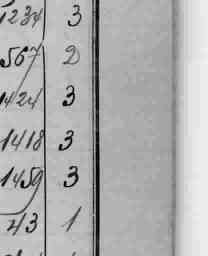 1234 3
567 2
1424 3
1418 3
1459 3
43 1